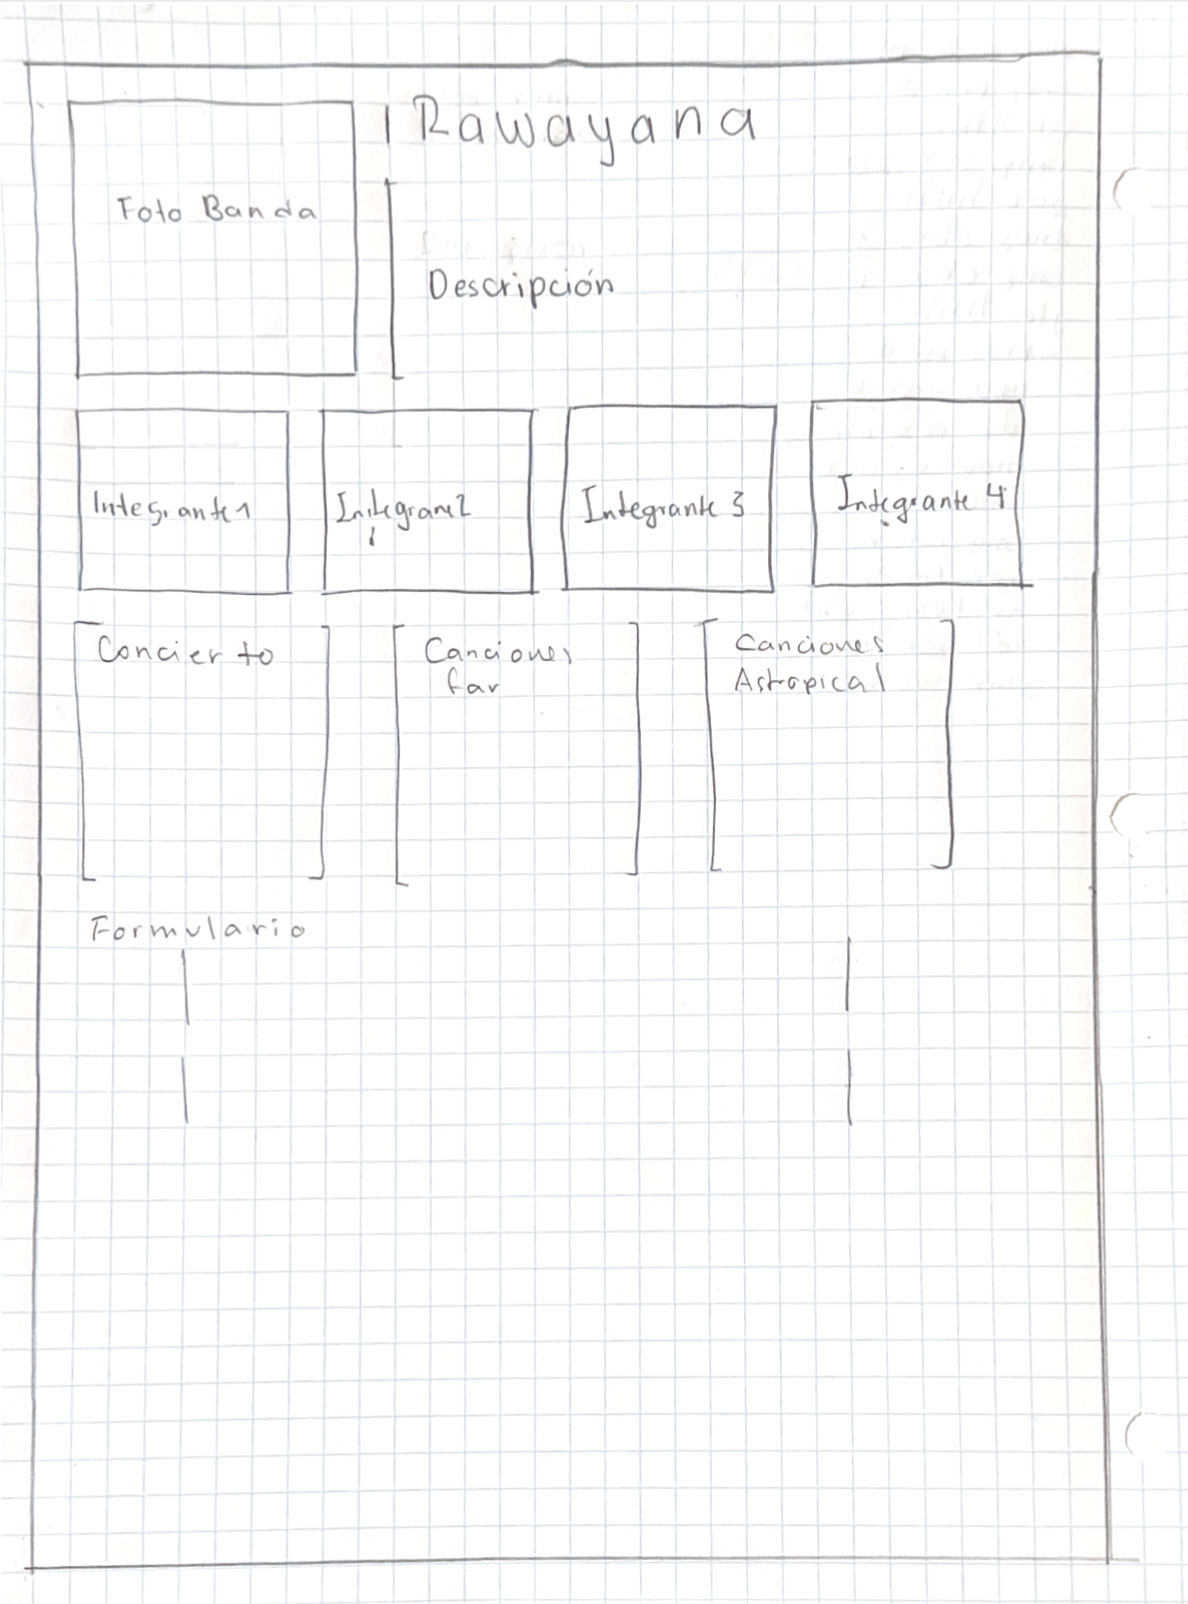 Rawayana
Foto Banda
Descripción
Integrante 1
Integrante 3
Integrante 4
Concierto
Canciones
fav
Canciones
Astropical
Formulario